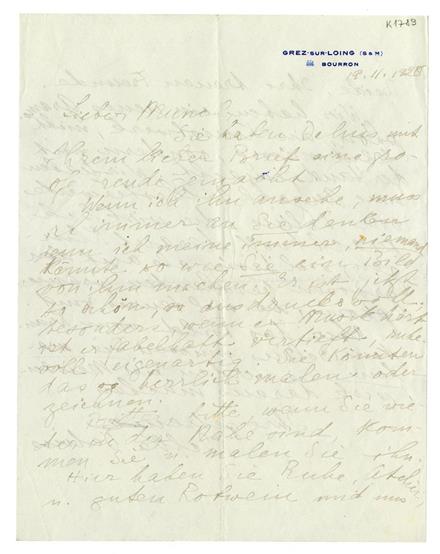 K1789
GREZ-SUR-LOING (S & M)
BOURRON
18.11.192
Lieber Munch
Sie haben Delius mit
Ihrem letzten Brief eine so
große Freude gemacht
Wenn ich ihn ansehe, muss
ich immer an Sie denken
denn ich meine immer, niemand
könnte so wie Sie ein Bild
von ihm machen. Er ist jetzt
so schön, so ausdrucksvoll.
besonders, wenn er Musik hört
ist er fabelhaft vertieft,
voll eigenartig. Sie könnten
das so herrlich malen oder
zeichnen.
Bitte, wenn Sie wie-
der in der Nähe sind, kom-
men Sie u. malen Sie ihn.
Hier haben Sie Ruhe, Atelier,
u. guten Rotwein und uns